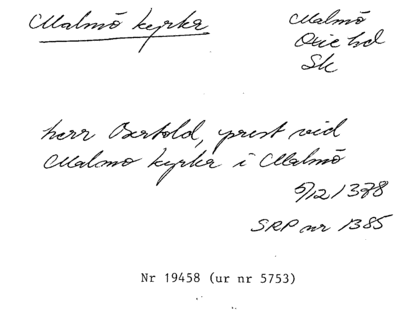 Malmö kyrka
Malmö
Oxie hd
Sk
herr Bertold, prest vid
Malmö kyrka i Malmö
5/12 1378
SRP nr 1385
Nr 19458 (ur nr 5753)